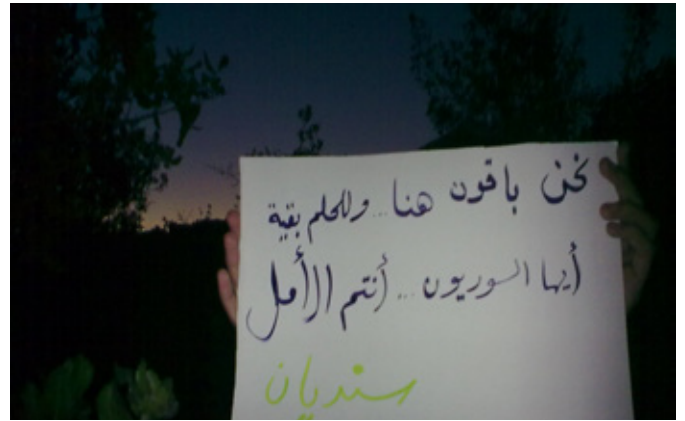 نحن باقون هنا...وللحلم بقية
أيها السوريون...أنتم الأمل
سنديان